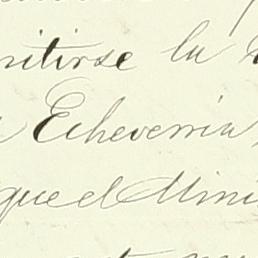 mitirse la
Echeverria
que el Mini